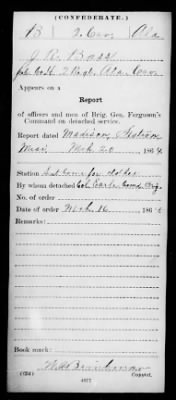 (CONFEDERATE.)
B 2 Cav Ala
J. R. Bass
Co. H, 2 Regt. Ala. Cav.
Appears on a
Report
of officers and men of Brig. Gen. Ferguson's
Command on detached service.
Report dated Madison Station
Miss, Mch 20 1864
Station Alabama for clothes
By whom detached Col. Earle Comd. Brig.
No. of order
Date of order Mch 16 1864
Remarks:
Book mark:
(634)
4877
Copyist.